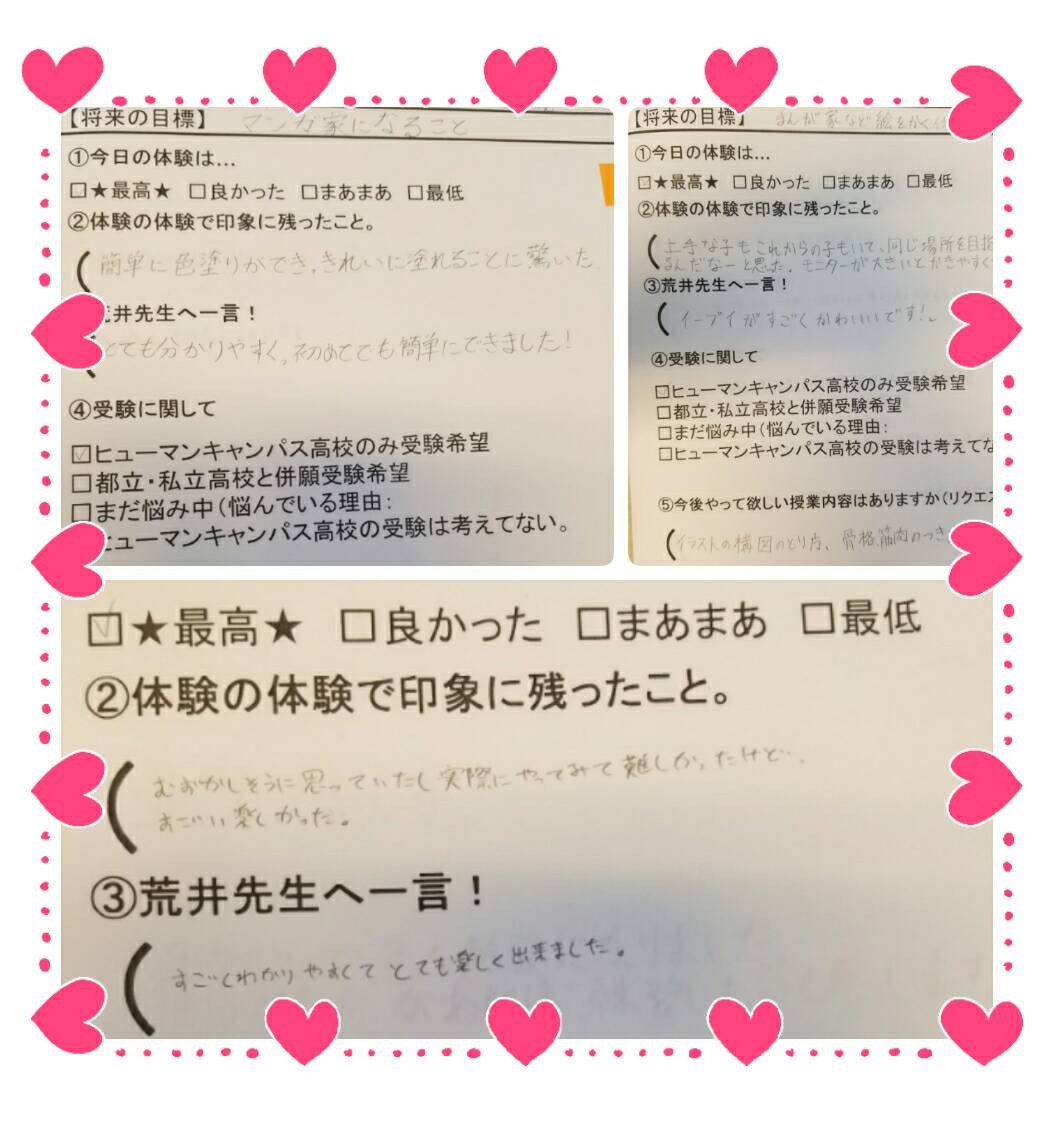 【将来の目標】 マンガ家になること
①今日の体験は…
☑★最高★ □良かった □まあまあ □最低
②体験の体験で印象に残ったこと。
(簡単に色塗りができ、きれいに塗れることに驚いた
荒井先生へ一言！
とても分かりやすく、初めてでも簡単にできました！
④受験に関して
☑ヒューマンキャンパス高校のみ受験希望
□都立・私立高校と併願受験希望
□まだ悩み中（悩んでいる理由：
ヒューマンキャンパス高校の受験は考えてない。
【将来の目標】 まんが家など絵をかく仕
①今日の体験は…
☑★最高★ □良かった □まあまあ □最低
②体験の体験で印象に残ったこと。
(上手な子もこれからの子もいて、同じ場所を目指
るんだなーと思った。モニターが大きいとかきやすく
③荒井先生へ一言！
(イーブイがすごくかわいいです！
④受験に関して
☑ヒューマンキャンパス高校のみ受験希望
□都立・私立高校と併願受験希望
□まだ悩み中（悩んでいる理由：
□ヒューマンキャンパス高校の受験は考えてな
⑤今後やって欲しい授業内容はありますか（リクエス
(イラストの構図のとり方、骨格、筋肉のつき
☑★最高★ □良かった □まあまあ □最低
②体験の体験で印象に残ったこと。
(むずかしそうに思っていたし実際にやってみて難しかったけど…
すごい楽しかった。
③荒井先生へ一言！
(すごくわかりやすくてとても楽しく出来ました。